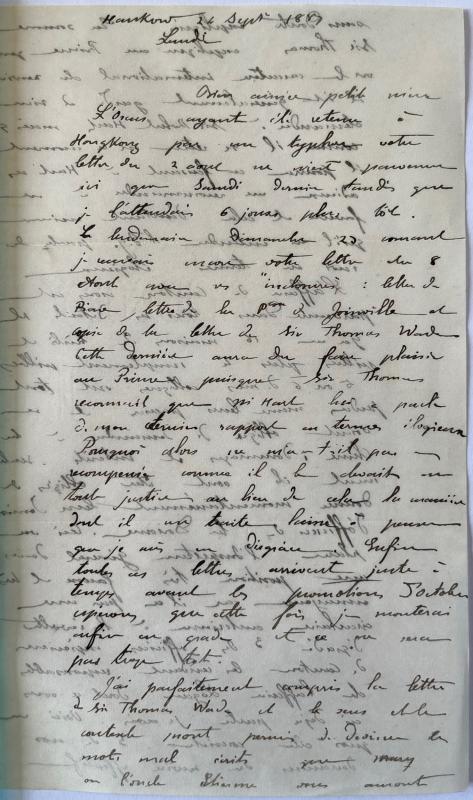 Hankow 24 Septr 188
Lundi
Bien aimée petite mère
L'Oxus ayant été retenu à
Hongkong par un typhon votre
lettre du 2 aout ne m'est parvenue
ici que Samedi dernier tandis que
je l'attendais 6 jours plus tôt.
Le lendemain Dimanche 23 courant
je recevais encore votre lettre du 8
Aout avec ses "inclosures": lettre de
Pierre lettre de la Psse de Joinville et
copie de la lettre de Sir Thomas Wade
Cette dernière aura du faire plaisir
au Prince puisque Sir Thomas
reconnait que Mr Hart lui a parlé
de mon dernier rapport en termes élogieux
Pourquoi alors ne m'a-t-il pas
récompensé comme il le devait en
toute justice au lieu de cela la manière
dont il me traite laisse à penser
que je suis en disgrâce Enfin
toutes ces lettres arrivent juste à
temps avant les promotions d'Octobre
espérons que cette fois je monterai
enfin en grade et ce ne sera
pas trop tôt.
J'ai parfaitement compris la lettre
de Sir Thomas Wade et le sens et le
contexte m'ont permis de deviner les
mots mal écrits que
ou l'oncle Etienne vous auront